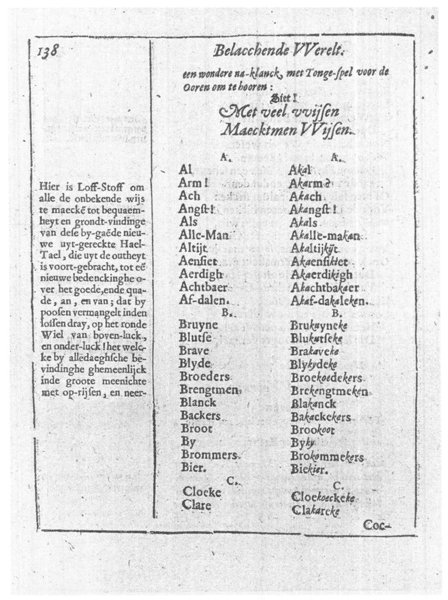 138
Belacchende VVerelt.
een wondere na-klanck, met Tonge-spel voor de
Ooren om te hooren:
Sitt!
Met veel vvijsen
Maecktmen VVijsen.
Hier is Loff-Stoff om
alle de onbekende wijs
te maecke tot bequaem-
heyt en grondt-vindinge
van dese by-gaede nieu-
we uyt-gereckte Hael-
Tael, die uyt de outheyt
is voort-gebracht, tot eē
nieuwe bedenckinghe o-
ver het goede, ende qua-
de, an, en van; dat by
poosen vermangelt inden
lossen dray, op het ronde
Wiel van boven-luck,
en onder-luck! het welc-
ke by alledaeghsche be-
vindinghe ghemeenlijck
inde groote meenichte
met op-rijsen, en neer-
A. A.
Al Akal
Arm! Akarm?
Ach Akach
Angst! Akangst!
Als Akals
Alle-Man Akalle-makan
Altijt Akaltijkijt
Aensiet Akaensikiet
Aerdigh Akaerdikigh
Achtbaer Akachtbakaer
Af-dalen. Akaf-dakaleken.
B. B.
Bruyne Brukuyneke
Blutse Blukutseke
Brave Brakaveke
Blyde Blykydeke
Broeders Broekoedekers
Brengtmen Brekengtmeken
Blanck Blakanck
Backers Bakackekers
Broot Brookoot
By Byky
Brommers. Brokommekers
Bier. Biekier.
C. C.
Cloeke Cloekoeckeke
Clare Clakareke
Coc-